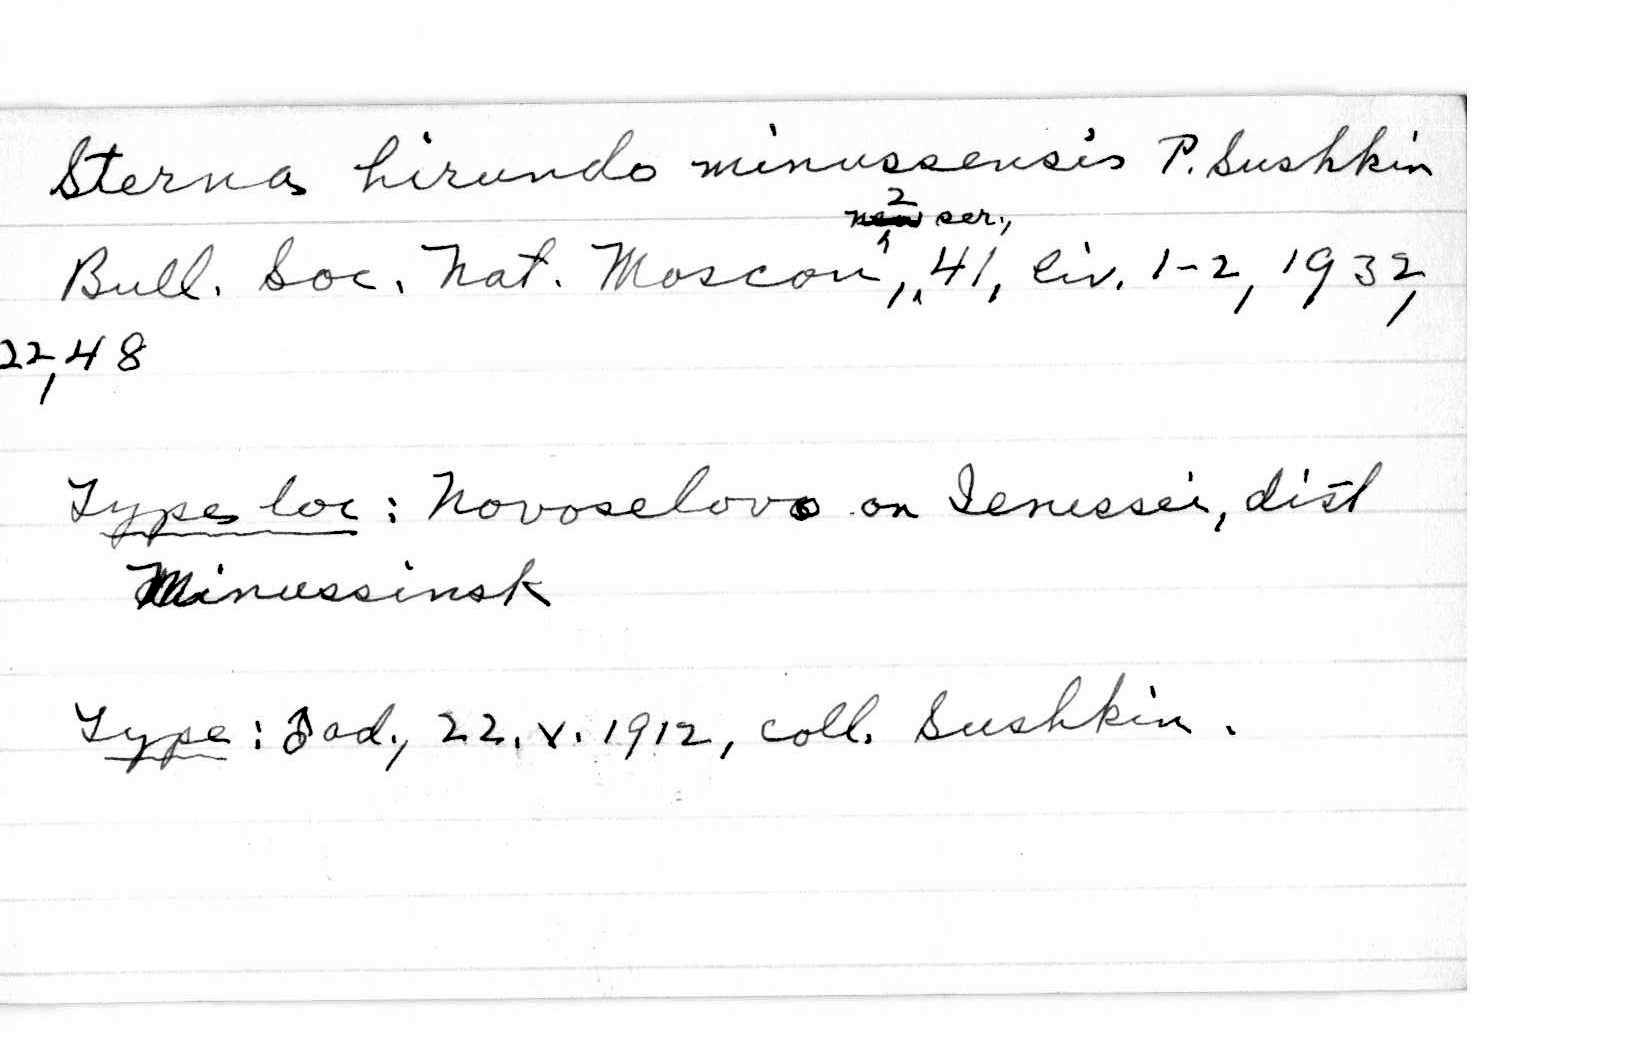 Sterna hirundo minussensis P. Sushkin
2 ser.,
Bull. Soc. Nat. Moscou, 41, liv. 1-2, 1932,
22, 48
Type loc: Novoselovo on Ienessei, dist
Minussinsk
Type: ♂ ad., 22. v. 1912, coll. Sushkin.